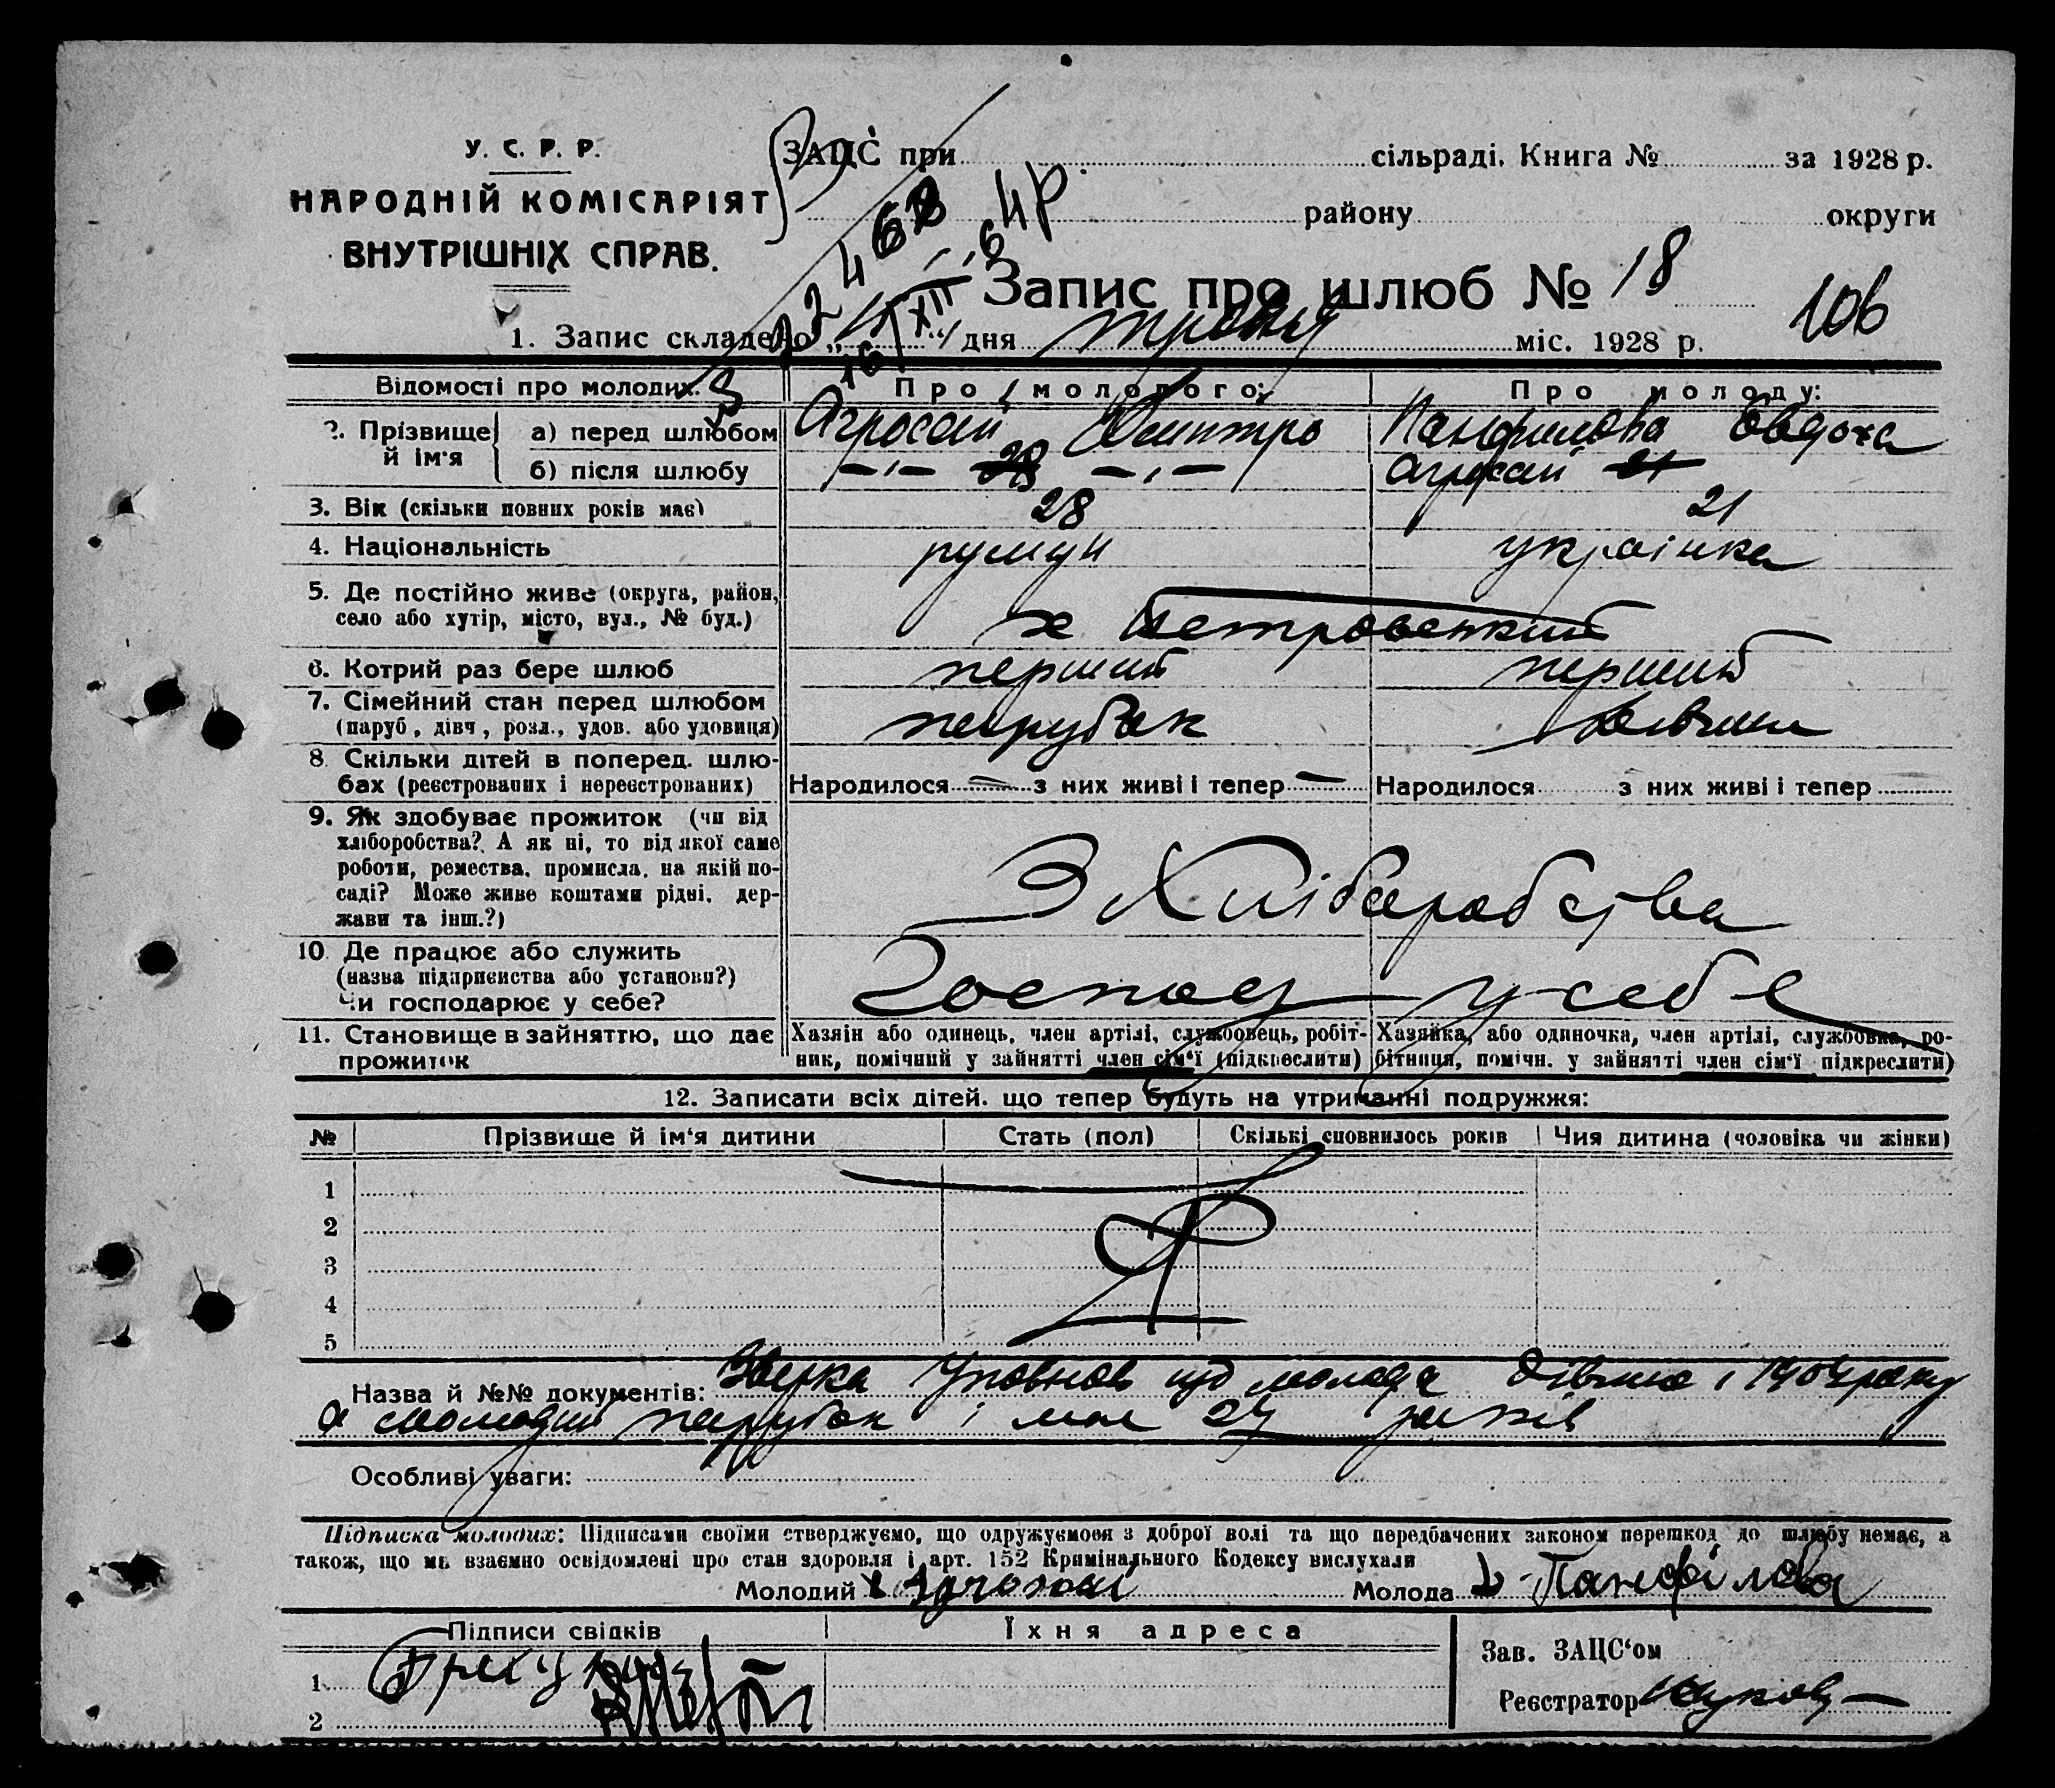 У. С. Р. Р.
НАРОДНІЙ КОМІСАРІЯТ
ВНУТРІШНІХ СПРАВ.
ЗАЦС при сільраді. Книга № за 1928 р.
району округи
Запис про шлюб № 18
106
1. Запис складено „15“ дня травня міс. 1928 р.
Відомості про молодих. Про молодого: Про молоду:
2. Прізвище й ім'я
а) перед шлюбом Дмитро Панфилова Овдоха
б) після шлюбу —„— 28 —„— 21
3. Вік (скільки повних років має) 28 21
4. Національність румун українка
5. Де постійно живе (округа, район,
село або хутір, місто, вул., № буд.) х Петровський
6. Котрий раз бере шлюб перший перший
7. Сімейний стан перед шлюбом
(паруб, дівч, розл., удов. або удовиця) парубок дівчина
8. Скільки дітей в поперед. шлю-
бах (реєстрованих і нереєстрованих) Народилося — з них живі і тепер — Народилося з них живі і тепер
9. Як здобуває прожиток (чи від
хліборобства? А як ні, то від якої саме
роботи, ремества, промисла, на якій по-
саді? Може живе коштами рідні, дер-
жави та інш.?)
З Хліборобства
10. Де працює або служить
(назва підприємства або установи?)
Чи господарює у себе?
Господ у себе
11. Становище в зайняттю, що дає
прожиток
Хазяїн або одинець, член артілі, службовець, робіт-
ник, помічний у зайнятті член сім'ї (підкреслити)
Хазяйка, або одиночка, член артілі, службовка, ро-
бітниця, помічн. у зайнятті член сім'ї підкреслити)
12. Записати всіх дітей. що тепер будуть на утриманні подружжя:
№ Прізвище й ім'я дитини Стать (пол) Скількі сповнилось років Чия дитина (чоловіка чи жінки)
1
2
3
4
5
Назва й №№ документів: молода дівчина і 1904 року
а молодий парубок і має 24 років
Особливі уваги:
Підписка молодих: Підписами своїми стверджуємо, що одружуємося з доброї волі та що передбачених законом перешкод до шлюбу немає, а
також, що ми взаємно освідомлені про стан здоровля і арт. 152 Кримінального Кодексу вислухали
Молодий Молода Панфілова
Підписи свідків Їхня адреса
1
2
Зав. ЗАЦС'ом
Реєстратор